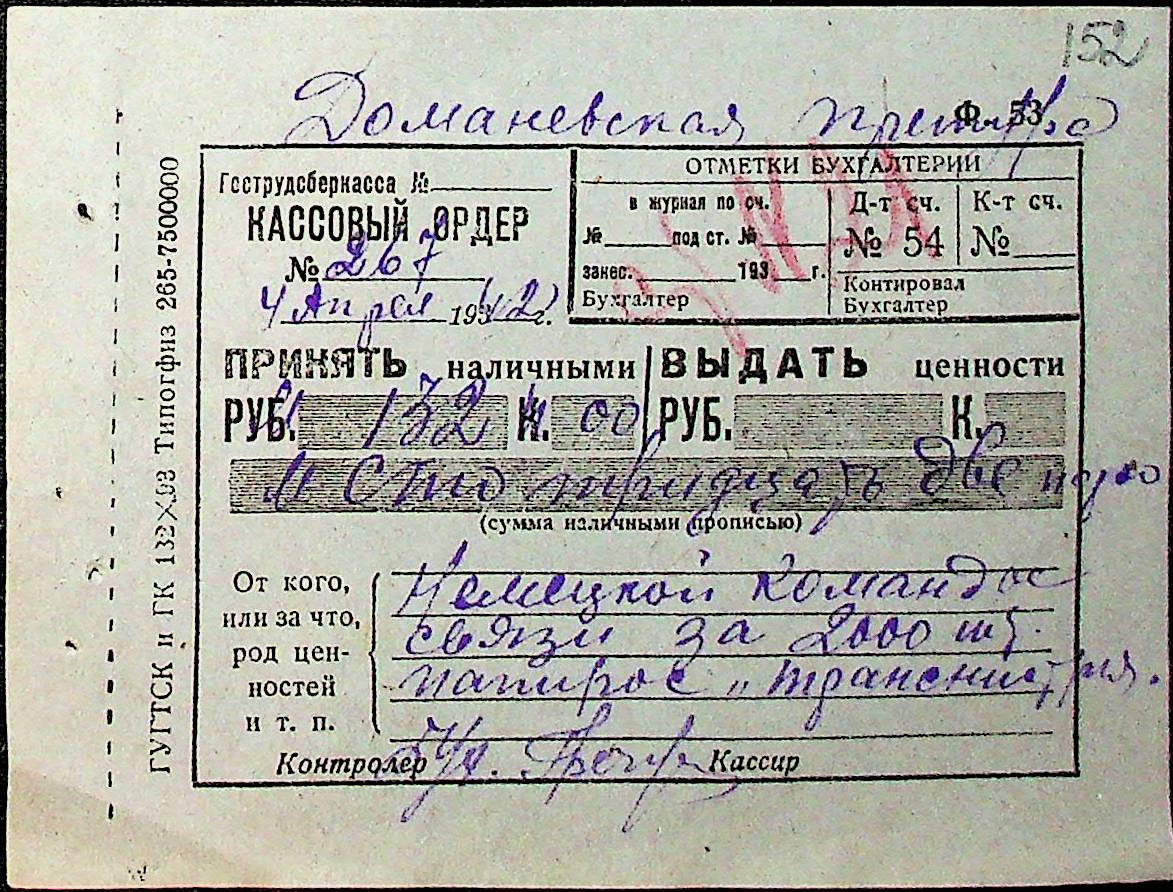 152
Доманевская претура
Ф. 53
Гострудсберкасса №
КАССОВЫЙ ОРДЕР
№ 267
4 Апреля 1942 г.
ОТМЕТКИ БУХГАЛТЕРИИ
в журнал по сч.
№ под ст. №
занес. 193 г.
Бухгалтер
Д-т сч.
№ 54
К-т сч.
№
Контировал
Бухгалтер
ПРИНЯТЬ наличными
РУБ. 132 К. 00
ВЫДАТЬ ценности
РУБ. К.
М Сто тридцать две
(сумма наличными прописью)
От кого,
или за что,
род цен-
ностей
и т. п.
Немецкой Команде
связи за 2000 шт.
папирос „Транснистрия.
Контролер
Кассир
ГУГТСК и ГК 132×93 Типогфиз 265-7500000